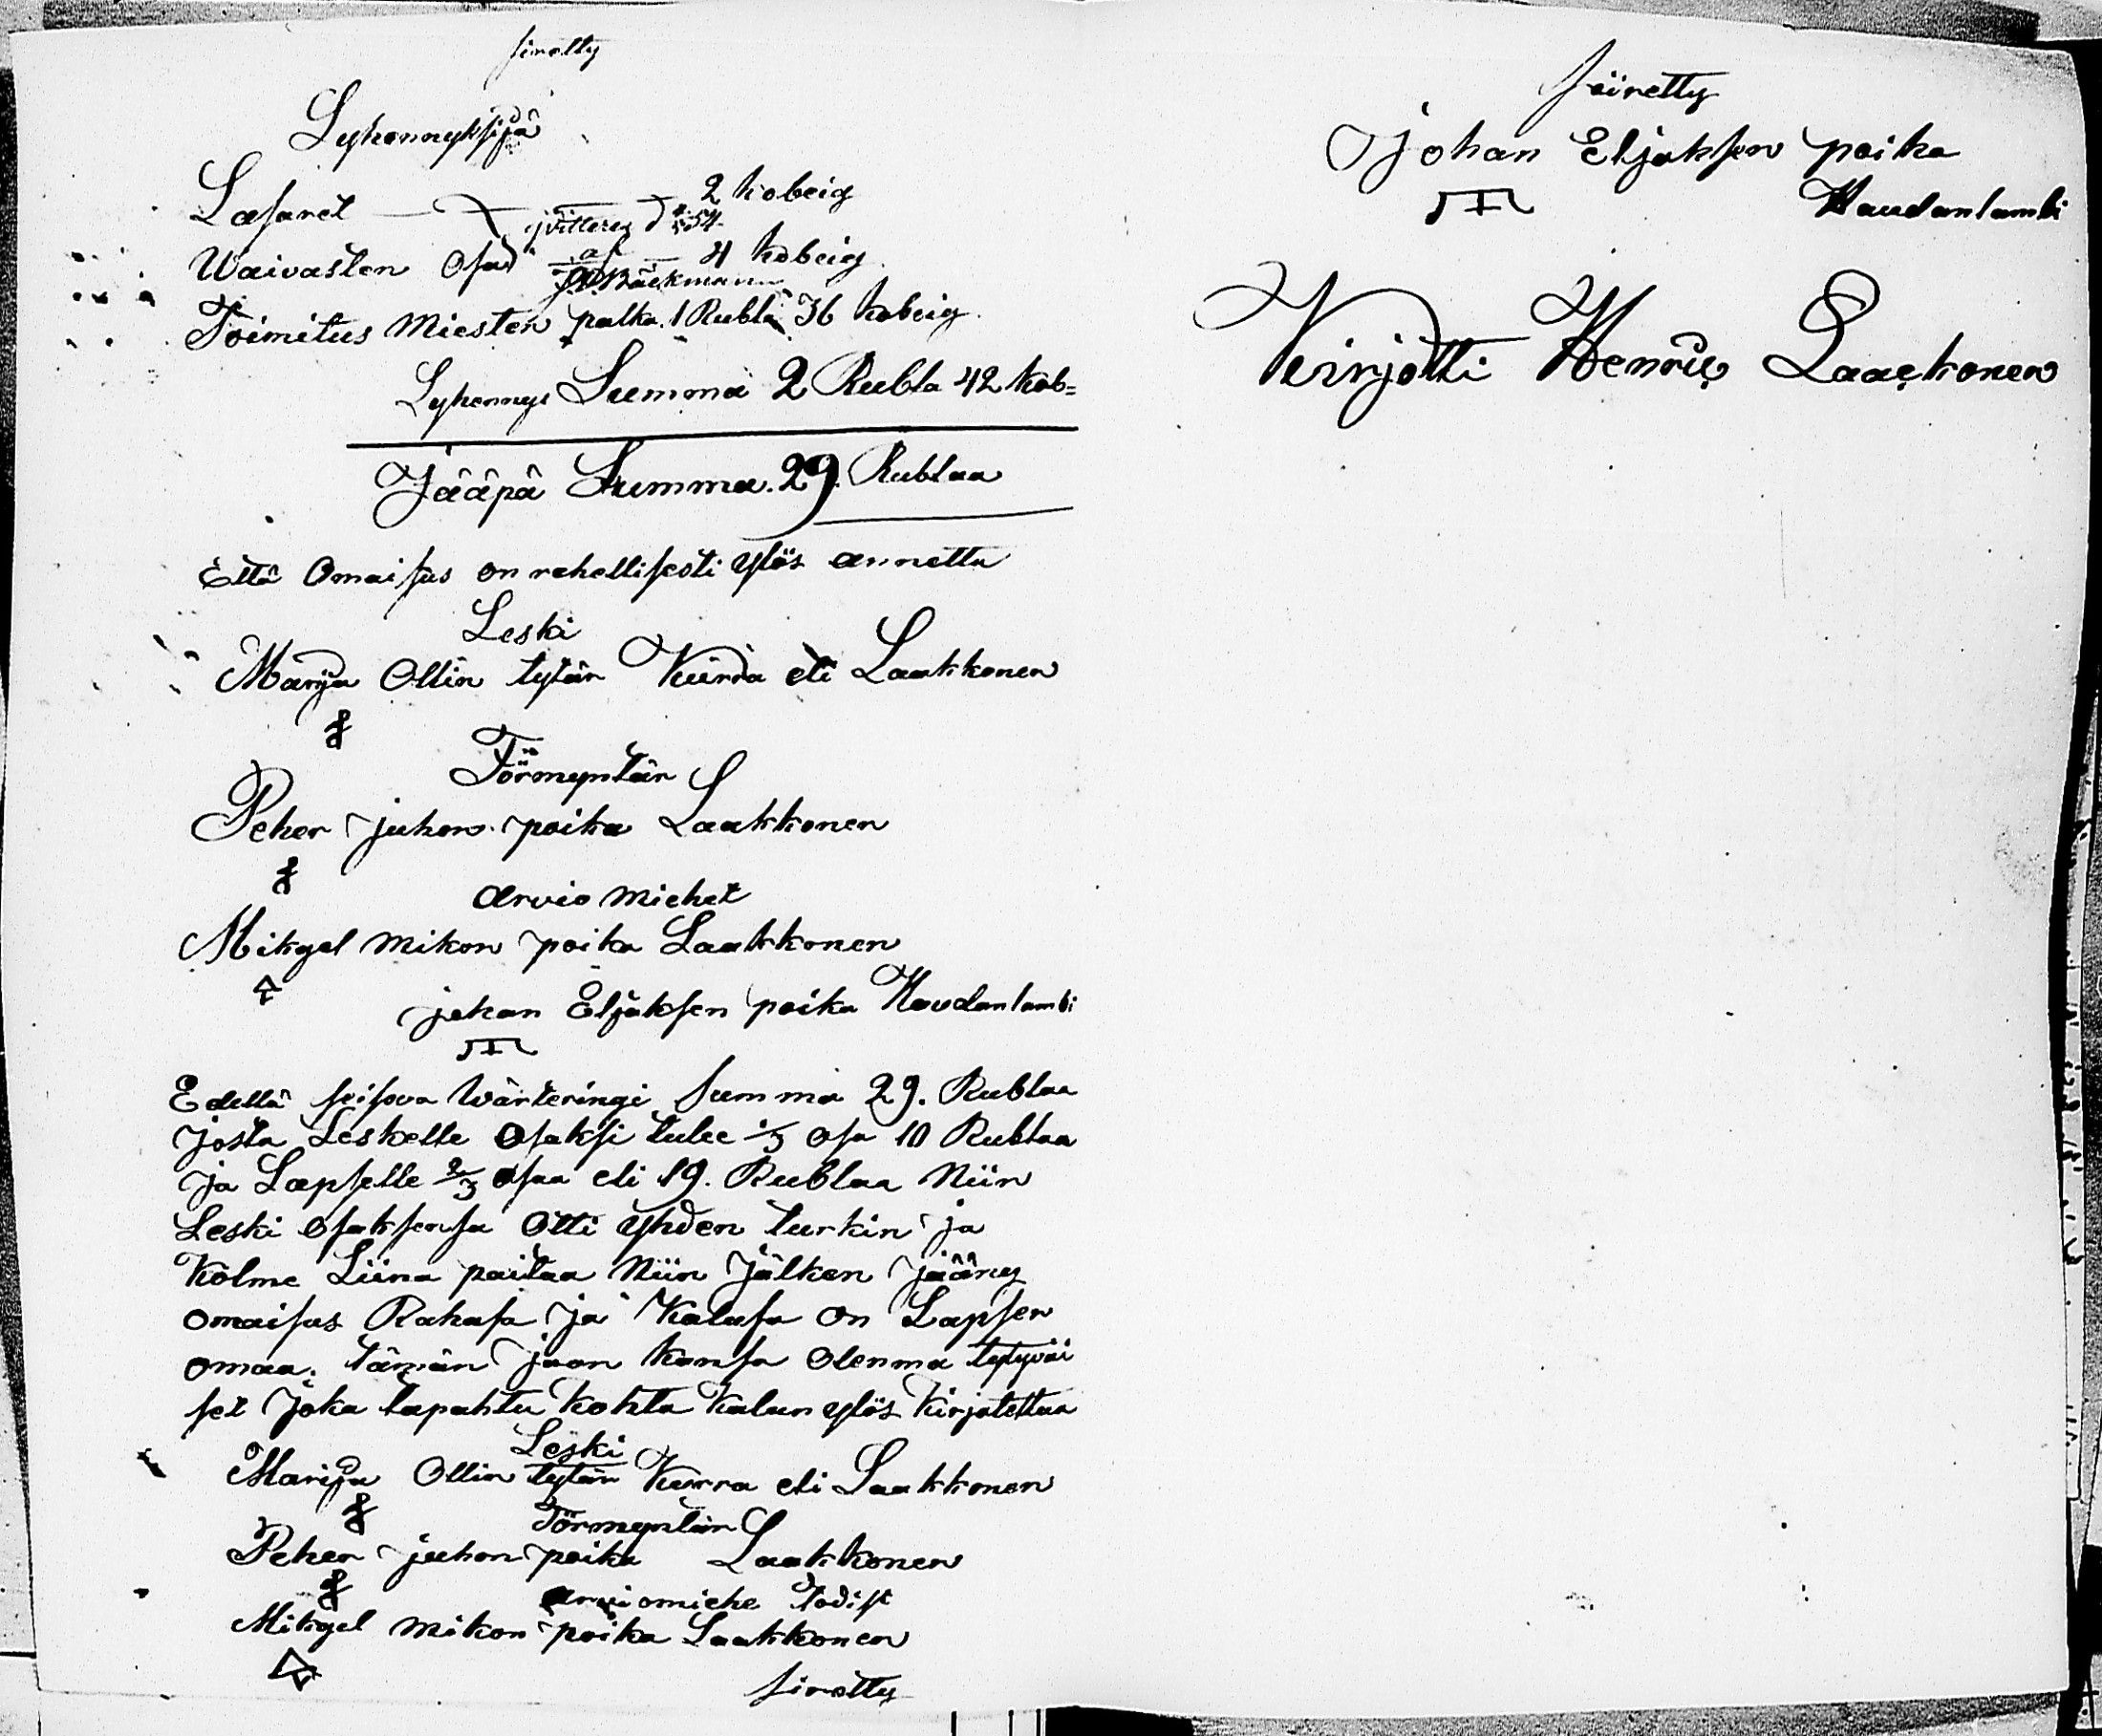 siretty
Lyhennyksijä
Lasaret — 2 kobeig
qvitteras d 54
Waivasten Osa — 4 kobeig
af
Bäckmann
Toimitus Miesten palka 1 Rubla 36 kobeig
Lyhennys Summa 2 Rubla 42 kob=
Jääpä Summa. 29. Rublaa
Että Omaisus on rehellisesti ylös annettu
Leski
Marija Ollin tytär Kurra eli Laakkonen
Förmyntär
Peher juhon poika Laakkonen
arvio miehet
Mikgel Mikon poika Laakkonen
johan Eljaksen poika Haudanlambi
Edellä seisova Wärteringi summa 29. Rublaa
josta Leskelle Osaksi tulee 1/3 osa 10 Rublaa
ja Lapselle 2/3 osaa eli 19. Rublaa Niin
Leski osaksensa Otti yhden turkin ja
Kolme Liina paitaa Niin jälken jääny
omaisus Rahasa ja Kalusa on Lapsen
omaa. tämän jaon kansa olenma tytyväi
set joka tapahtu kohta Kalun ylös kirjotettua
Leski
Marija Ollin tytär Kurra eli Laakkonen
Förmyntär
Peher juhon poika Laakkonen
arviomiehe todist
Mikgel Mikon poika Laakkonen
siretty
siiretty
Johan Eljaksen poika
Haudanlambi
Kirjotti Henric Laackonen